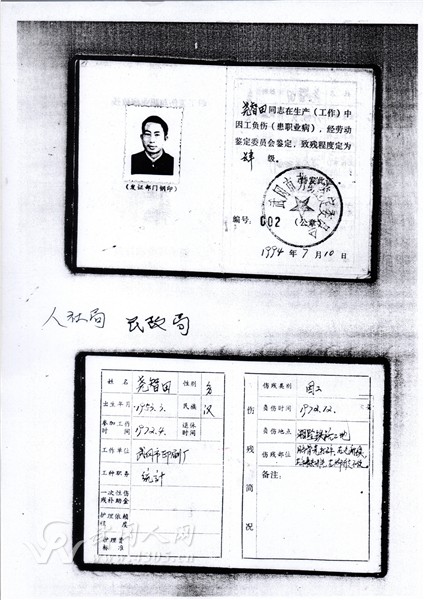 (发证部门钢印)
尧智田同志在生产(工作)中
因工负伤(患职业病),经劳动
鉴定委员会鉴定,致残程度定为
肆 级。
特发此证
编号: 002 (公章)
1994年7月10日
人社局 民政局
姓名 尧智田 性别 男
出生年月 1953.3. 民族 汉
参加工作时间 1972.4. 退休时间
工作单位 武冈市印刷厂
工种职务 统计
一次性伤残补助金
护理依赖程度
护理费标准
伤残简况
伤残类别 因工
负伤时间 1972.12.
负伤地点
伤残部位
备注:
武冈人网